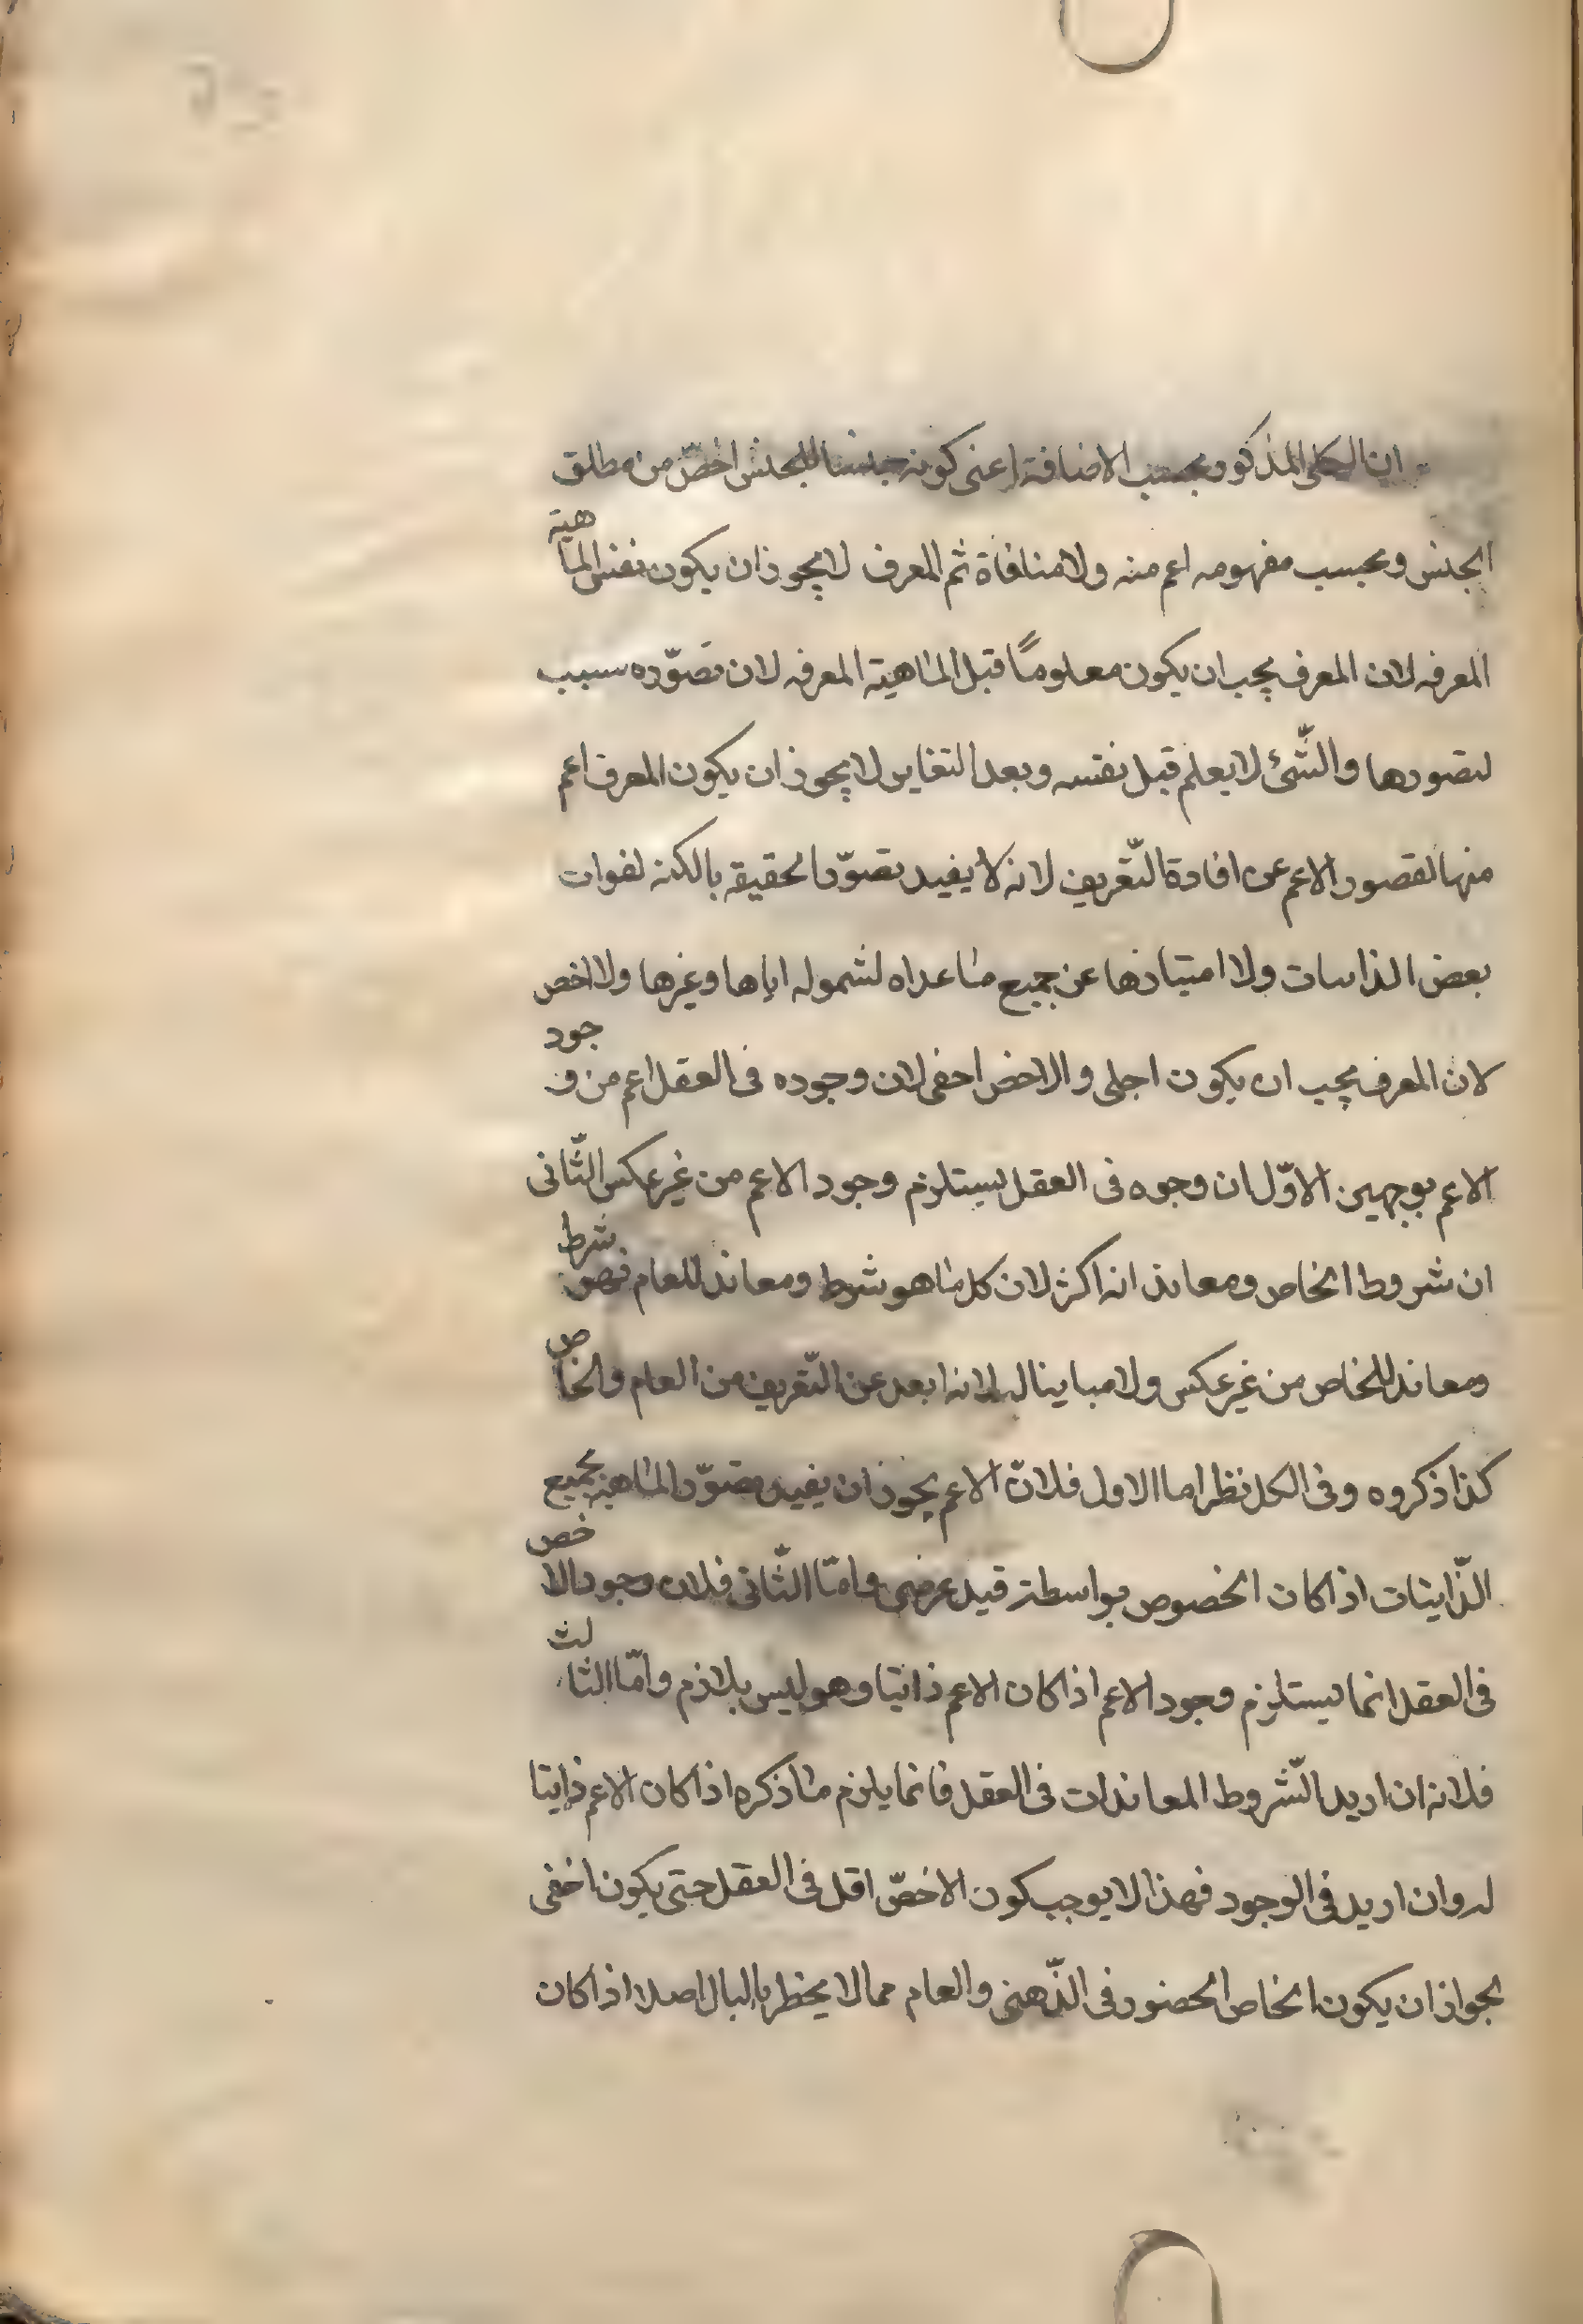 ان الكلى المذكور بحسب الاضافة اعنى كونه جنسا للجنس اخصّ من مطلق
الجنس وبحسب مفهومه اعم منه ولا منافاة ثم المعرف لا يجوز ان يكون نفس الماهية
المعرفه لان المعرف يجب ان يكون معلومًا قبل الماهية المعرفه لان تصوّره سبب
لتصورها والشّئ لا يعلم قبل نفسه وبعد التغاير لا يجوز ان يكون المعرف اعم
منها لقصور الاعم عن افادة التّعريف لانه لا يفيد تصوّر الحقيقه بالكنه لفوات
بعض الذاتيات ولا امتيازها عن جميع ما عداه لشموله اياها وغيرها ولا اخص
لان المعرف يجب ان يكون اجلى والاخص اخفى لان وجوده فى العقل اعم من وجود
الاعم بوجهين الاوّل ان وجوه فى العقل يستلزم وجود الاعم من غير عكس الثّانى
ان شروط الخاص ومعاند انه اكثر لان كل ما هو شرط ومعاند للعام فهو شرط
ومعاند للخاص من غير عكس ولا مباينا لها لانه ابعد عن التّعريف من العام والخاص
كذا ذكروه وفى الكل نظر اما الاول فلانّ الاعم يجوز ان يفيد تصوّر الماهية بجميع
الذّاتيات اذا كان الخصوص بواسطة قيد عرضى وامّا الثّانى فلان وجود الاخص
فى العقل انما يستلزم وجود الاعم اذا كان الاعم ذاتيا وهو ليس بلازم وامّا الثالث
فلانه ان اريد الشّروط المعاندات فى العقل فانما يلزم ما ذكره اذا كان الاعم ذاتيا
له وان اريد فى الوجود فهذا لا يوجب كون الاخصّ اقل فى العقل حتى يكون اخفى
لجواز ان يكون الخاص الحضور فى الذّهنى والعام مما لا يخطر بالبال اصلا اذا كان